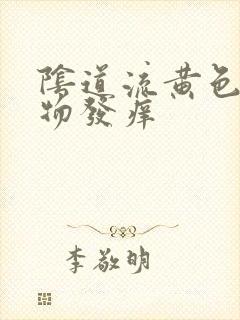 陰道流黄色
物發痒
李敬明